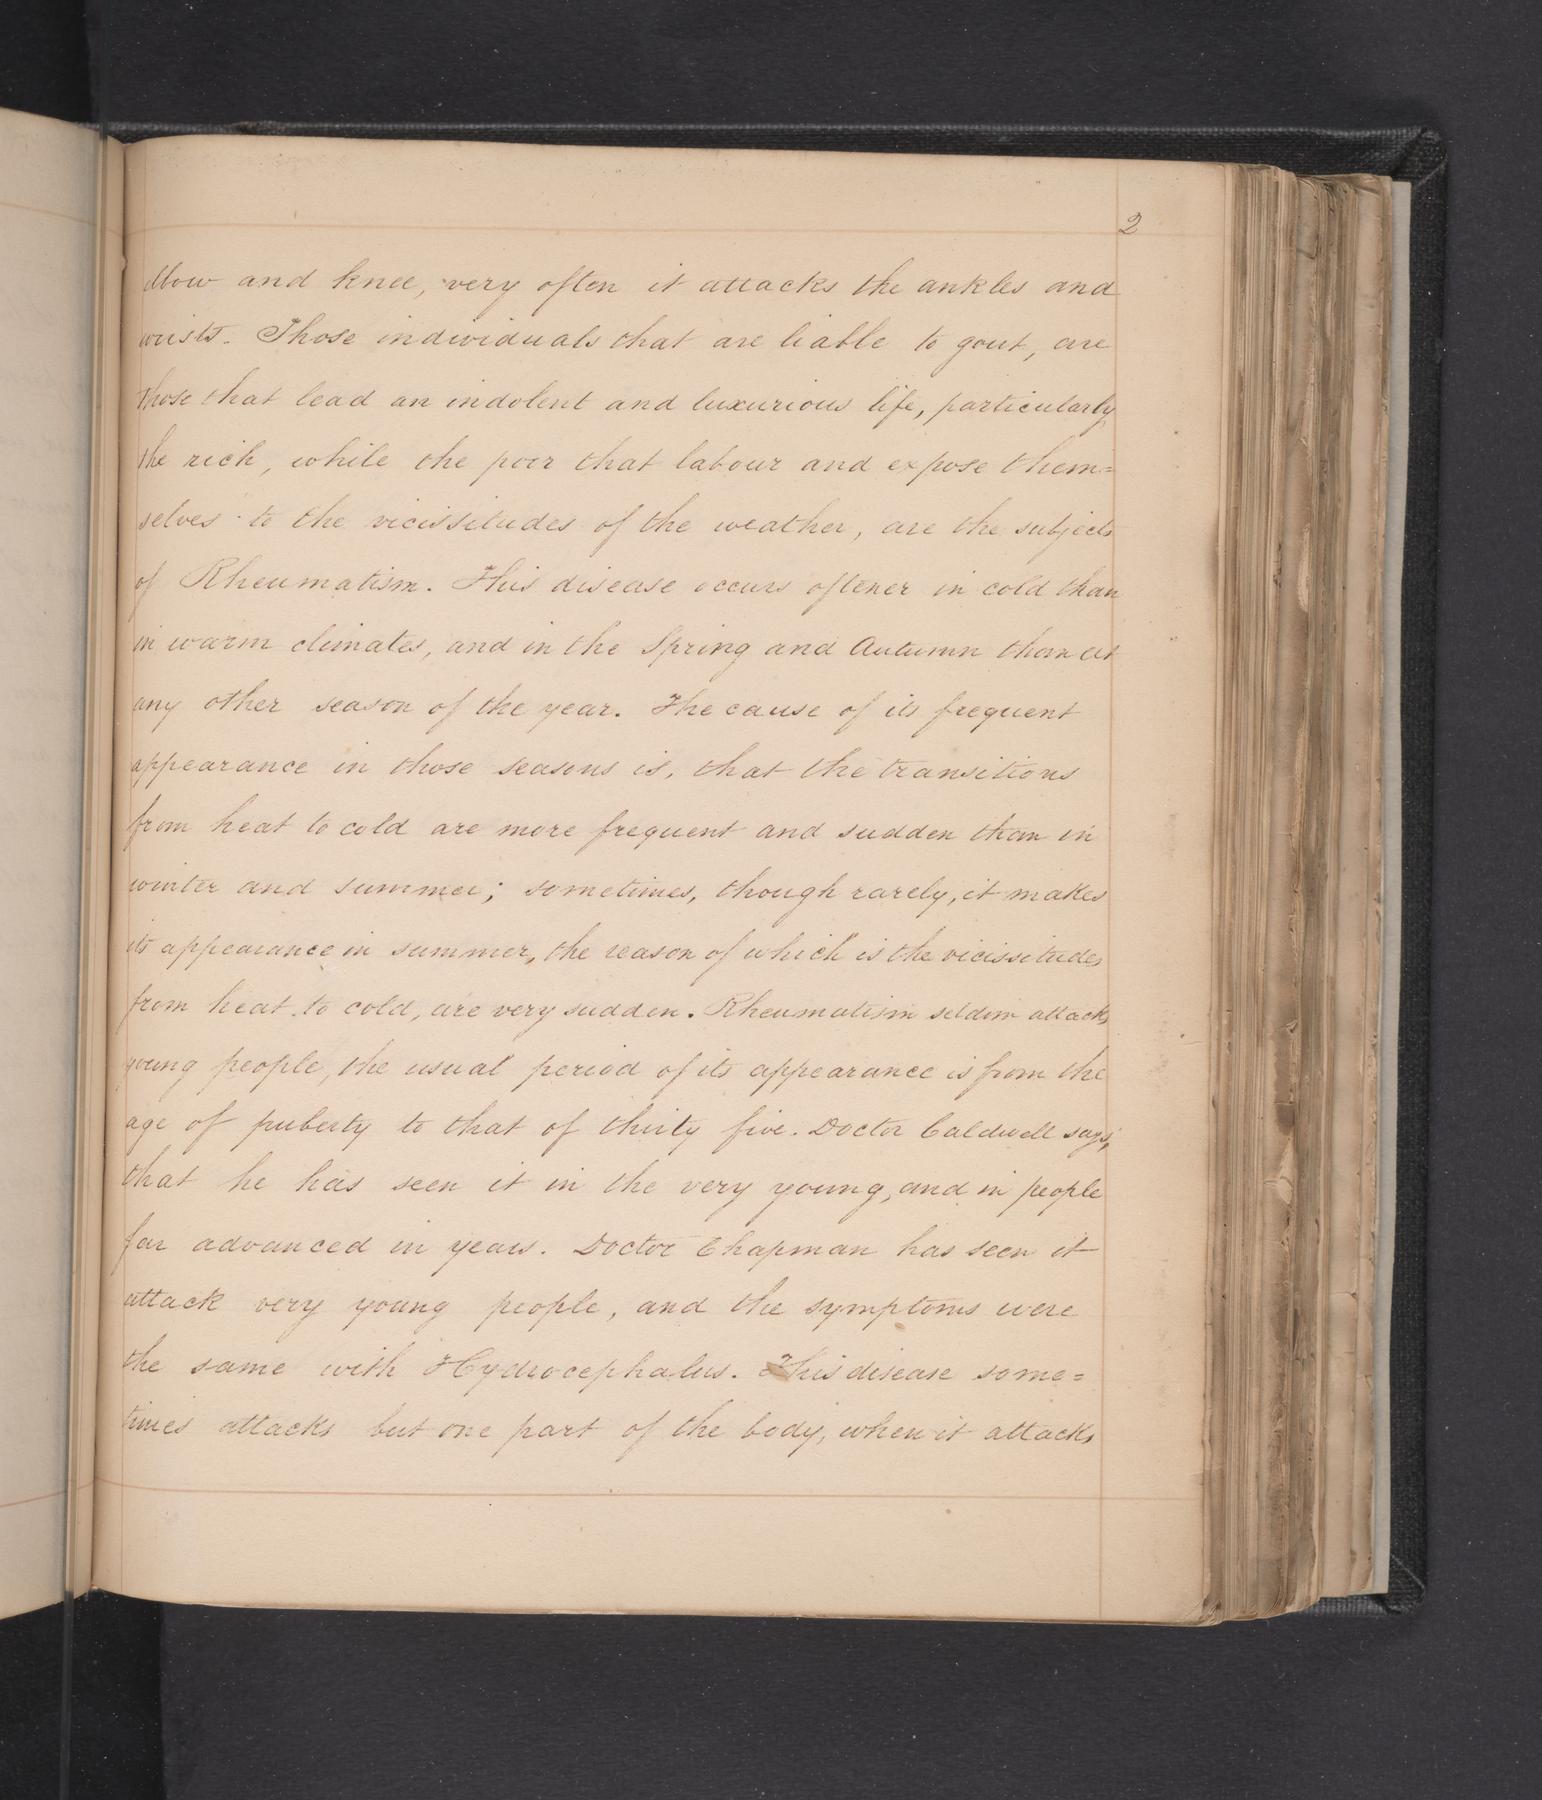 2
elbow and knee, very often it attacks the ankles and
wrists. Those individuals that are liable to gout, are
those that lead an indolent and luxurious life, particularly
the rich, while the poor that labour and expose them=
selves to the vicissitudes of the weather, are the subjects
of Rheumatism. This disease occurs oftener in cold than
in warm climates, and in the Spring and Autumn than at
any other season of the year. The cause of its frequent
appearance in those seasons is, that the transitions
from heat to cold are more frequent and sudden than in
winter and summer; sometimes, though rarely, it makes
its appearance in summer, the reason of which is the vicissitudes
from heat to cold, are very sudden. Rheumatism seldom attacks
young people, the usual period of its appearance is from the
age of puberty to that of thirty five. Doctor Caldwell says,
that he has seen it in the very young, and in people
far advanced in years. Doctor Chapman has seen it
attack very young people, and the symptoms were
the same with Hydrocephalus. This disease some=
times attacks but one part of the body, when it attacks